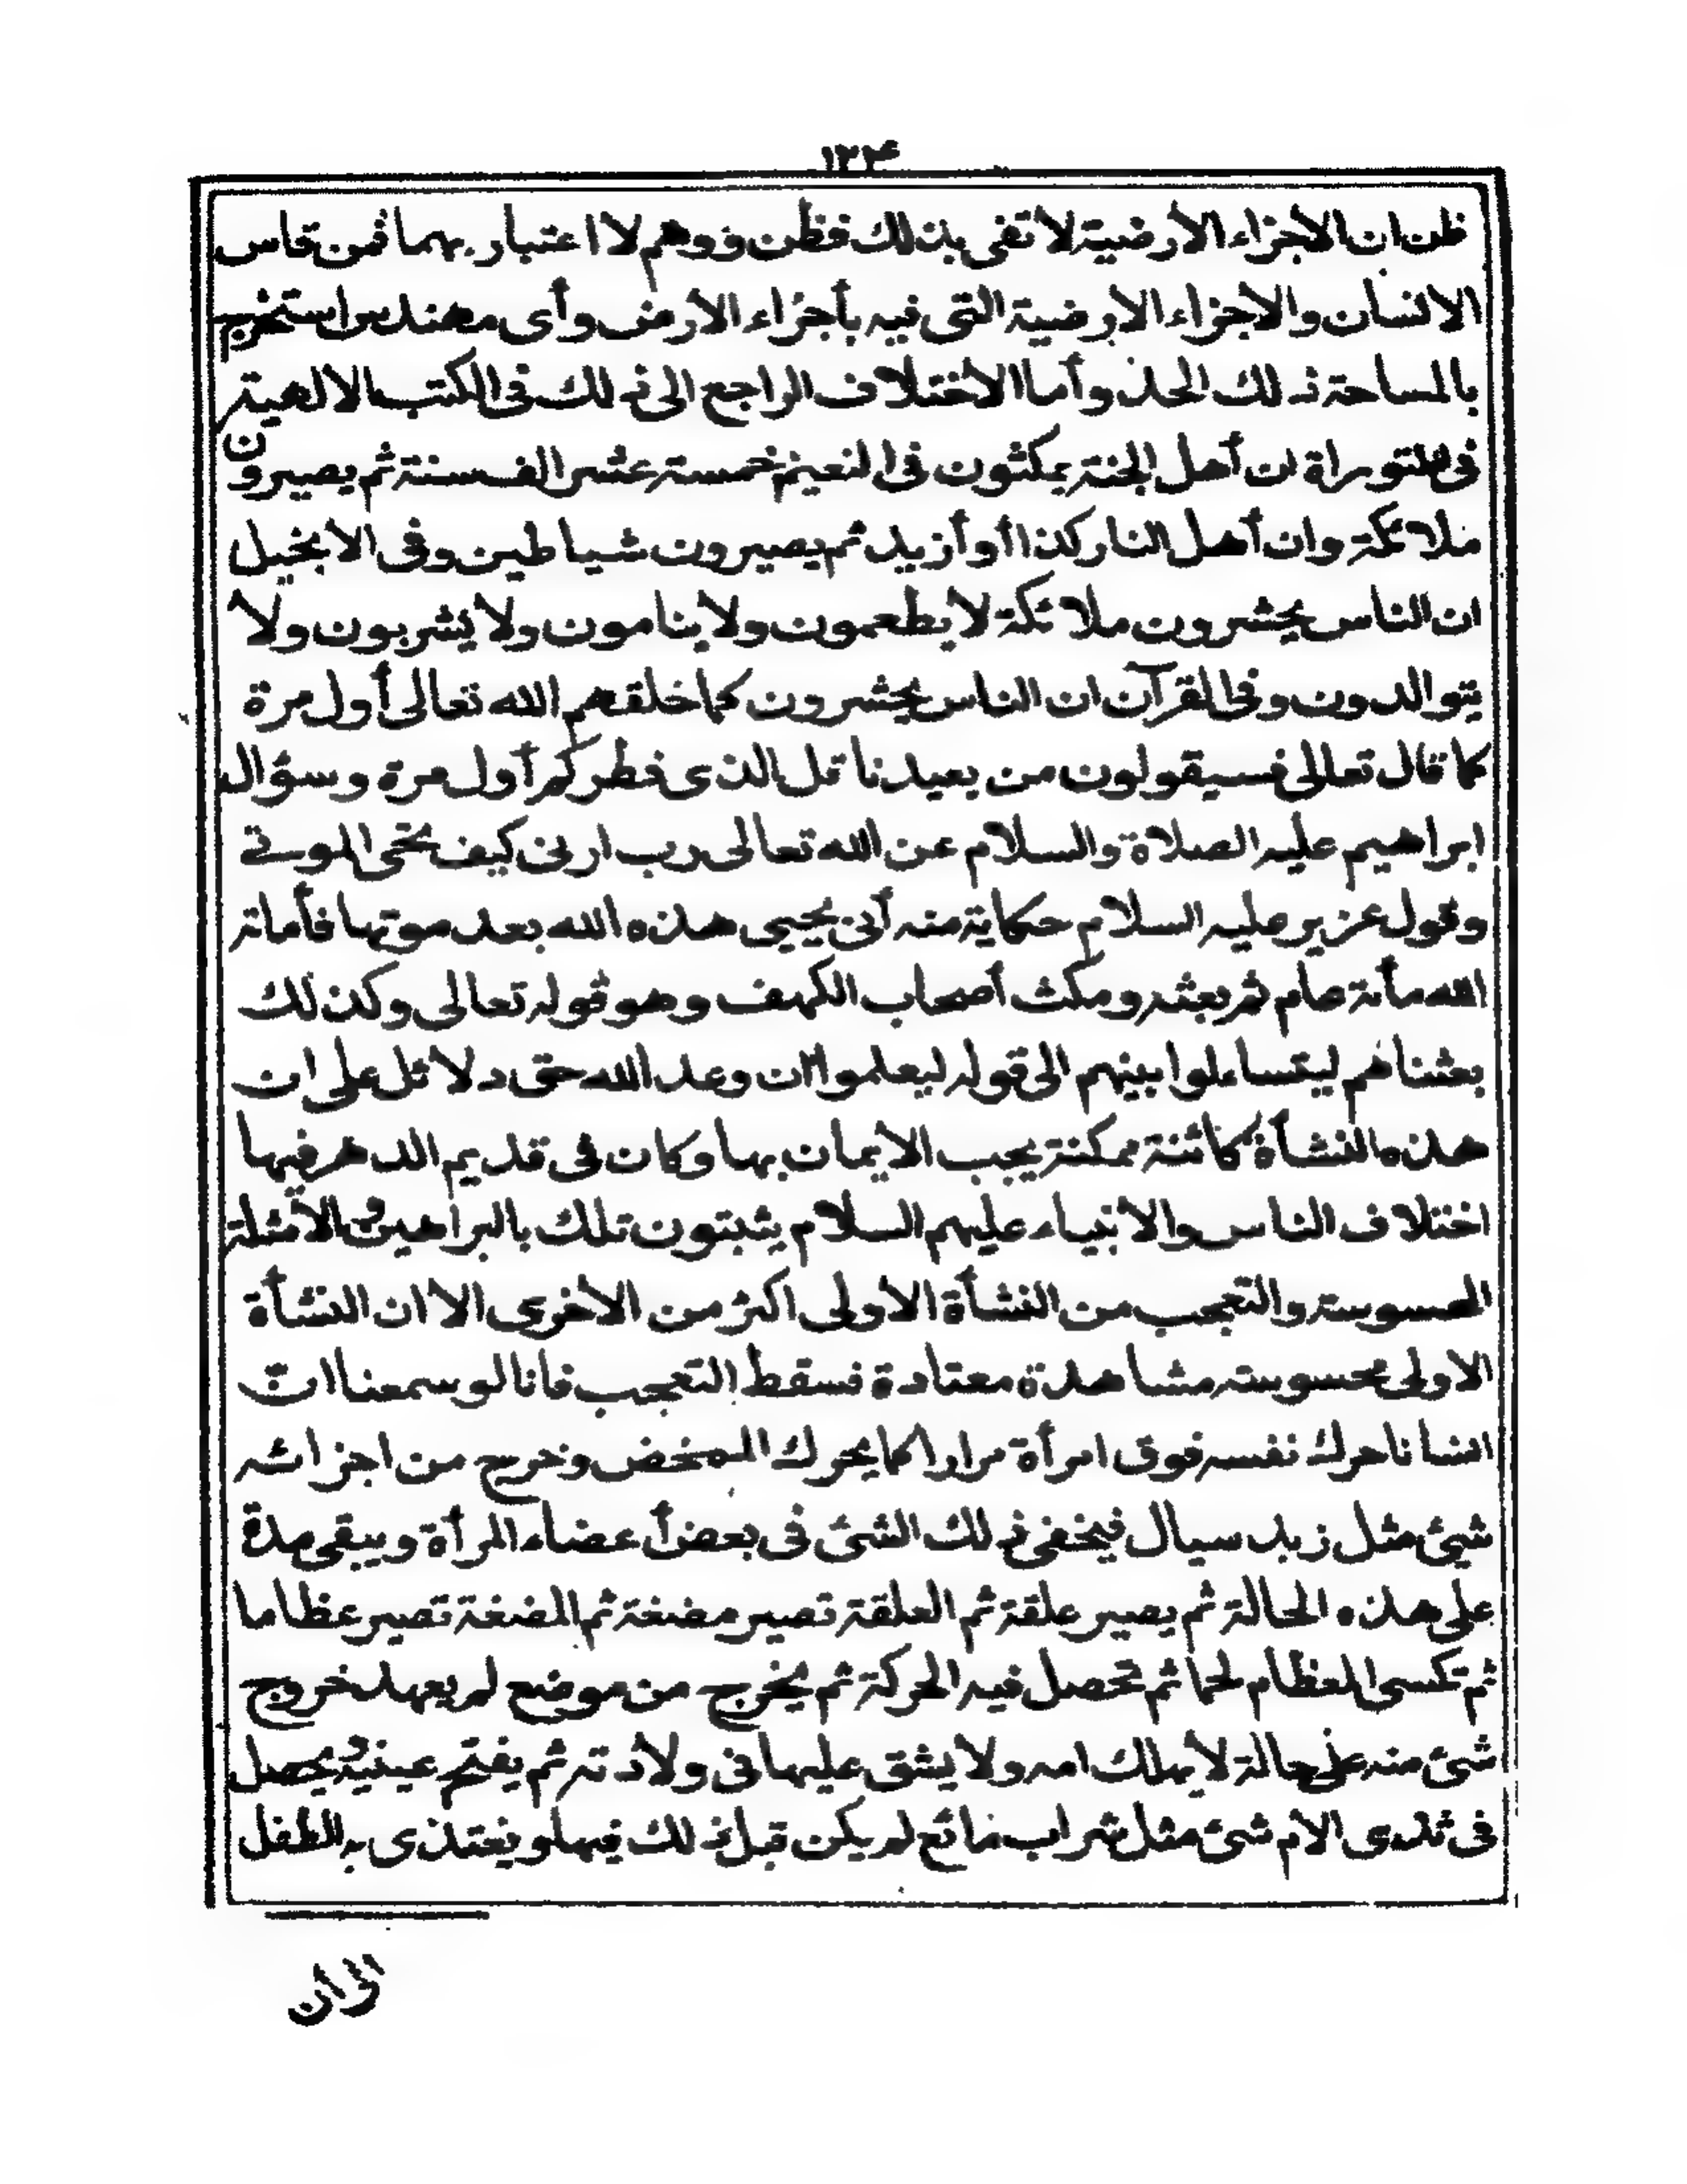 ١٢٤
ظن ان الأجزاء الأرضية لا تفى بذلك فظن ووهم لا اعتبار بهما فمن قاس
الانسان والأجزاء الارضية التى فيه بأجزاء الارض وأى مهندس استخرج
بالمساحة ذلك الحد وأما الاختلاف الراجع الى ذلك فى الكتب الالهية
فى التوراة ان أهل الجنة يمكثون فى النعيم خمسة عشر الف سنة ثم يصيرون
ملائكة وان أهل النار كذا أو أزيد ثم يصيرون شياطين وفى الانجيل
ان الناس يحشرون ملائكة لا يطعمون ولا ينامون ولا يشربون ولا
يتوالدون وفى القرآن ان الناس يحشرون كما خلقهم الله تعالى أول مرة
كما قال تعالى فسيقولون من يعيدنا قل الذى فطركم أول مرة وسؤال
ابراهيم عليه الصلاة والسلام عن الله تعالى رب ارنى كيف تحى الموتى
وقول عزير عليه السلام حكاية منه أنى يحيى هذه الله بعد موتها فأماته
الله مأئة عام ثم بعثه ومكث أصحاب الكهف وهو قوله تعالى وكذلك
بعثناهم ليتساءلوا بينهم الى قوله ليعلموا ان وعد الله حق دلائل على ان
هذه النشأة كائنة ممكنة يجب الايمان بها وكان فى قديم الدهر فيها
اختلاف الناس والانبياء عليهم السلام يثبتون تلك بالبراهين والأمثلة
المحسوسة والتعجب من النشأة الاولى اكثر من الأخرى الا ان النشأة
الاولى محسوسة مشاهدة معتادة فسقط التعجب فانا لو سمعنا انّ
انسانا حرك نفسه فوق امرأة مرارا كما يحرك الممخض وخرج من اجزائه
شئ مثل زبد سيال فيخفى ذلك الشئ فى بعض أعضاء المرأة ويبقى مدة
على هذه الحالة ثم يصير علقة ثم العلقة تصير مضغة ثم المضغة تصير عظاما
ثم تكسى العظام لحما ثم تحصل فيه الحركة ثم يخرج من موضع لم يعهد خروج
شئ منه على حالة لا يهلك امه ولا يشق عليها فى ولادته ثم يفتح عينيه ويحصل
فى ثدى الام شئ مثل شراب مائع لم يكن قبل ذلك فيها ويغتذى به الطفل
الى أن